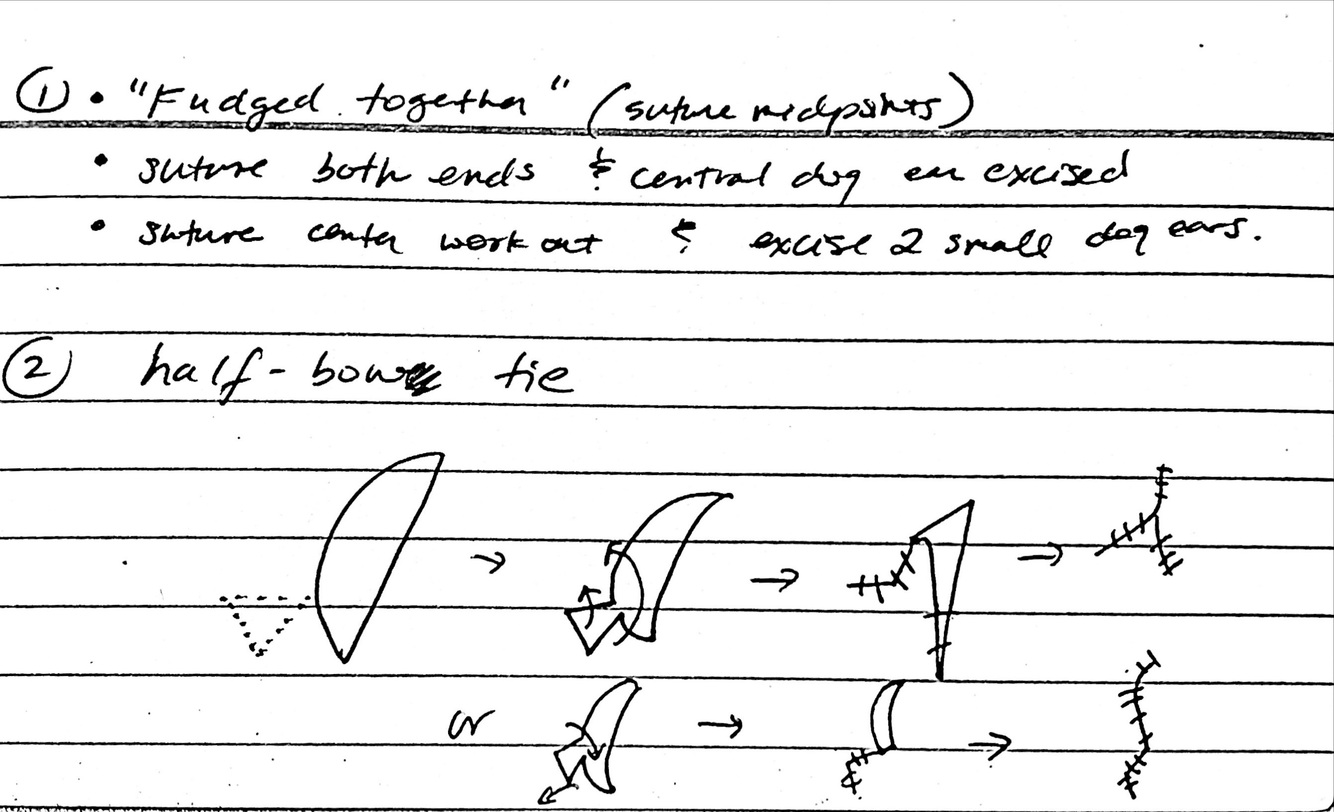 ① • "Fudged together" (suture midpoints)
• suture both ends & central dog ear excised
• suture center work out & excise 2 small dog ears.
② half-bow tie
or